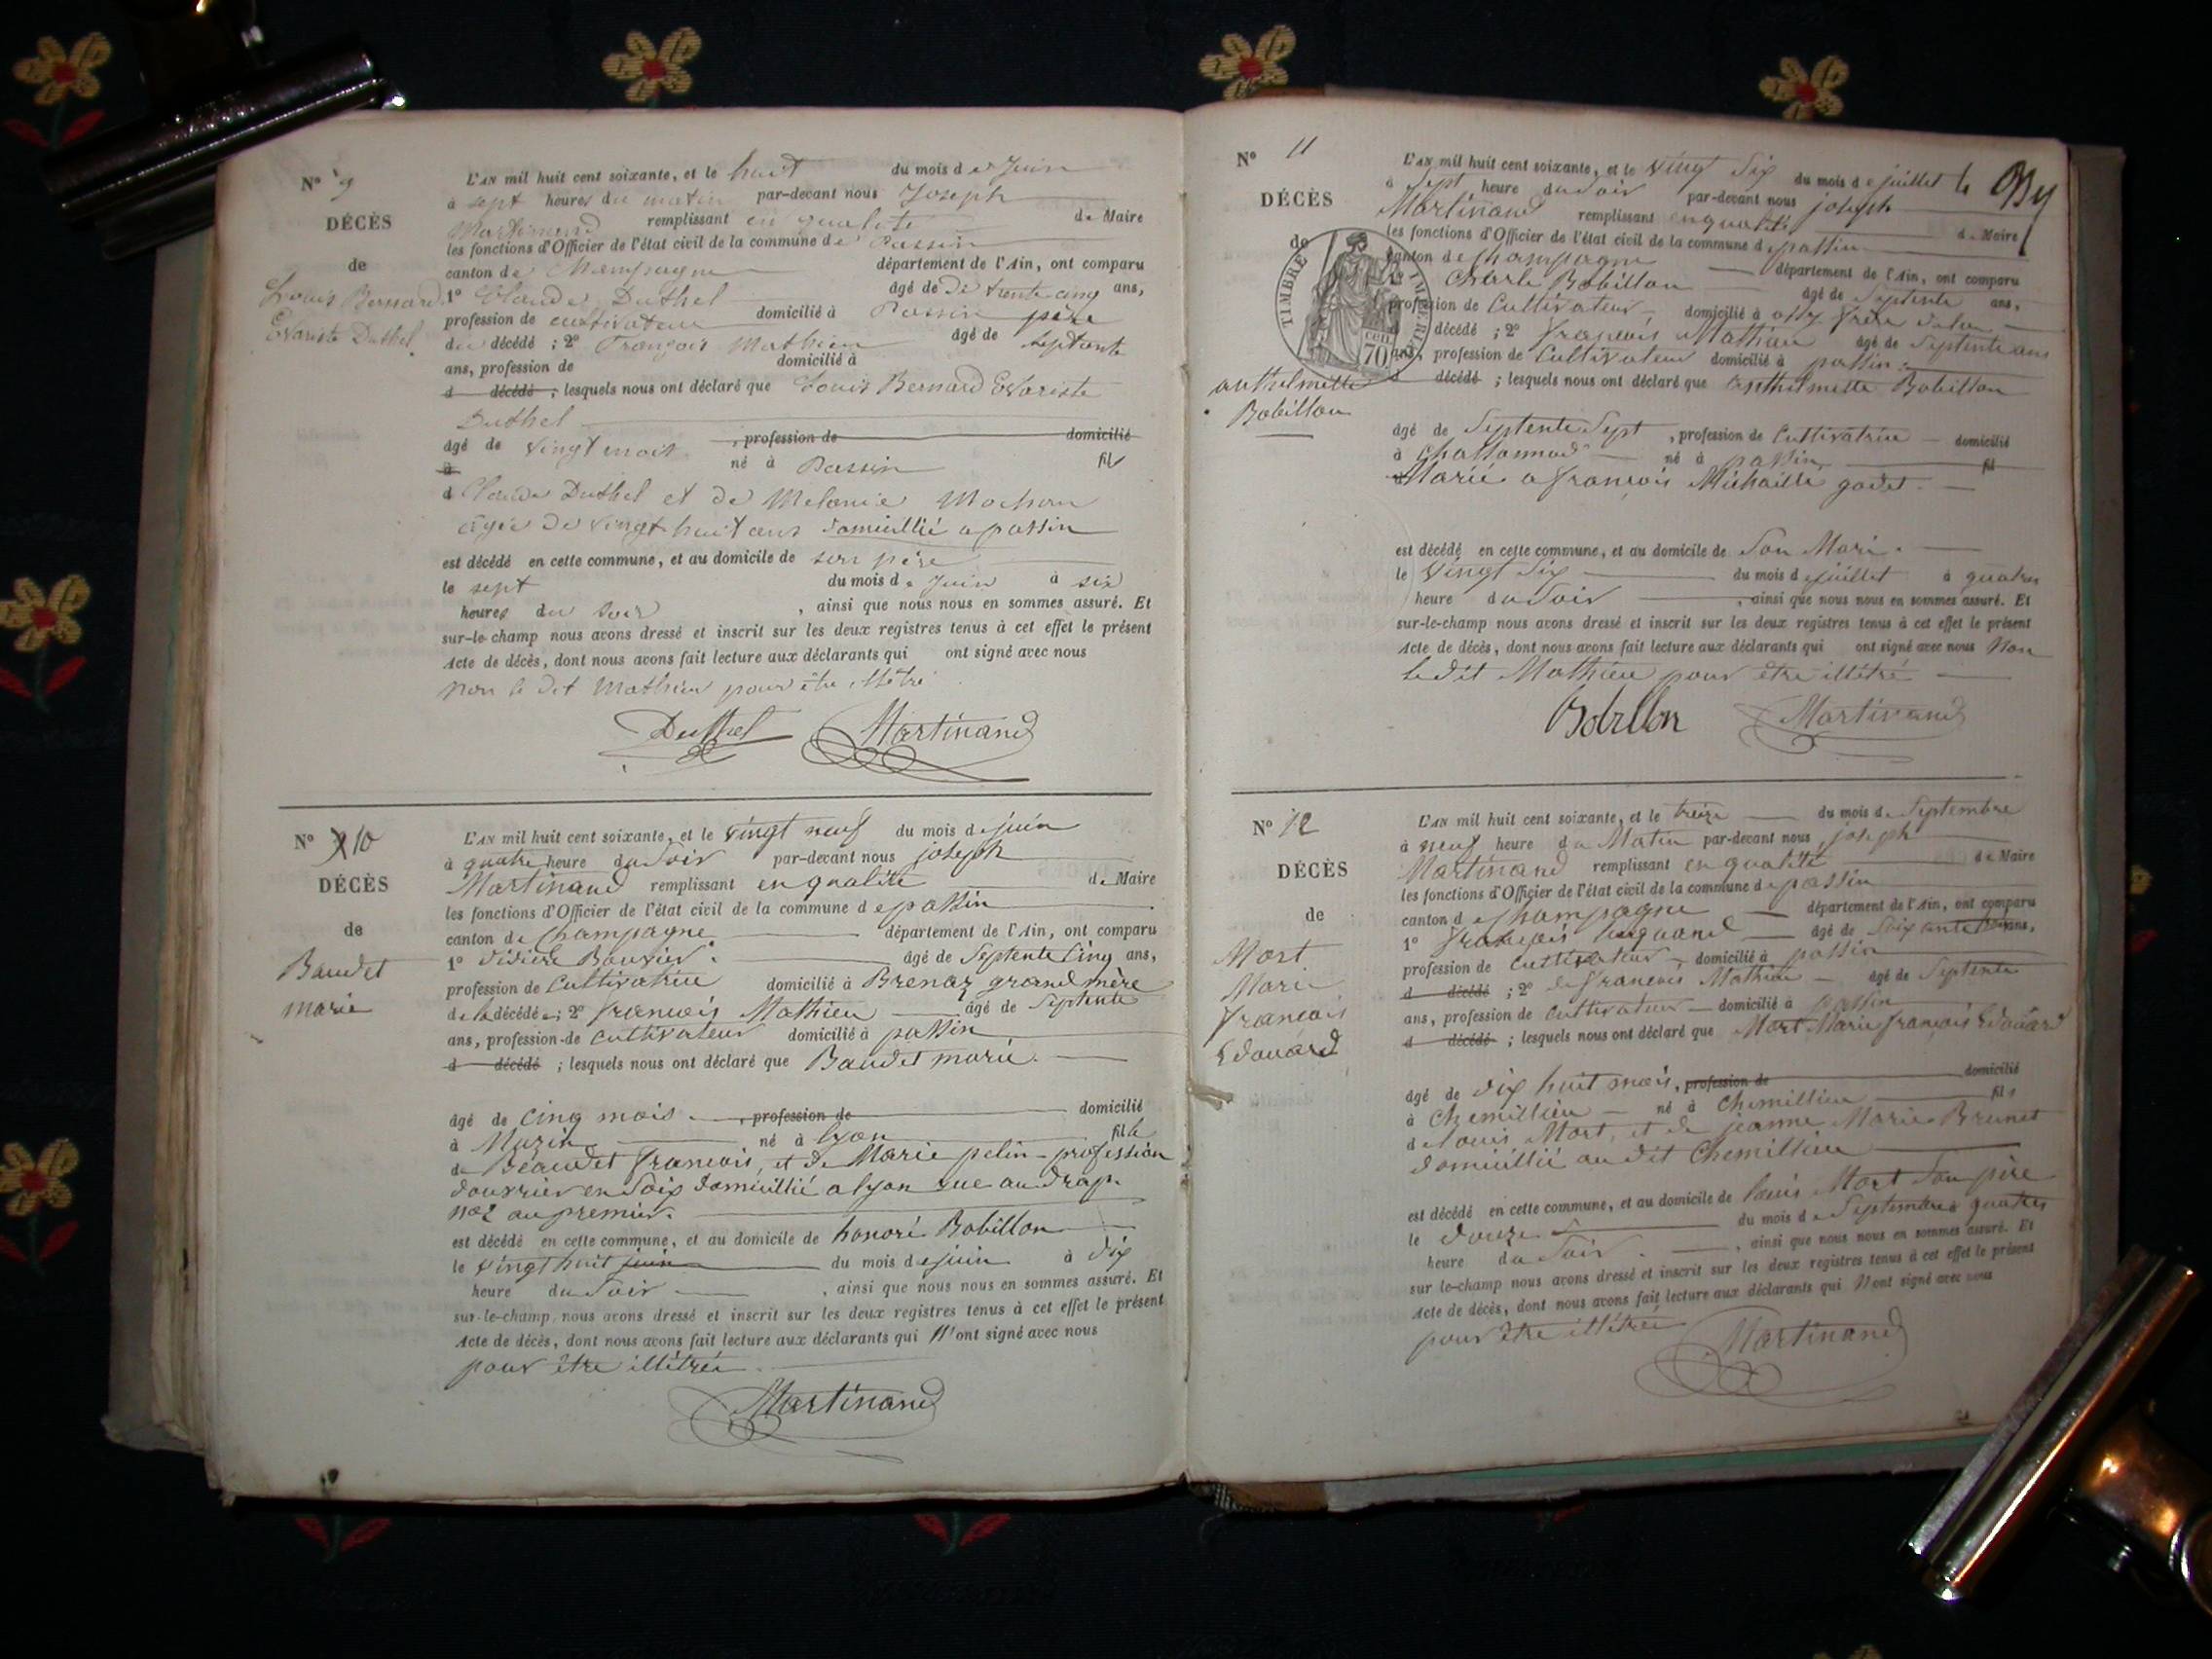 N° 9
DÉCÈS
de
Louis Bernard
Evariste Duthel
L'AN mil huit cent soixante, et le huit du mois de Juin
à sept heures du matin par-devant nous Joseph
Martinand remplissant en qualité de Maire
les fonctions d'Officier de l'état civil de la commune de Passin
canton de Champagne département de l'Ain, ont comparu
1° Claude Duthel âgé de De trente cinq ans,
profession de cultivateur domicilié à Passin père
du décédé ; 2° François Mathieu âgé de septente
ans, profession de domicilié à
d décédé ; lesquels nous ont déclaré que Louis Bernard Evariste
Duthel
âgé de vingt mois , profession de domicilié
à né à Passin fils
d Claude Duthel et de Melanie Mochon
agée de vingt huit ans domicillié a passin
est décédé en cette commune, et au domicile de son père
le sept du mois de Juin à six
heures du soir , ainsi que nous nous en sommes assuré. Et
sur-le-champ nous avons dressé et inscrit sur les deux registres tenus à cet effet le présent
Acte de décès, dont nous avons fait lecture aux déclarants qui ont signé avec nous
non le dit Mathieu pour être illétré
Duthel Martinand
N° 10
DÉCÈS
de
Baudet
marie
L'AN mil huit cent soixante, et le vingt neuf du mois de juin
à quatre heure du Soir par-devant nous joseph
Martinand remplissant en qualité de Maire
les fonctions d'Officier de l'état civil de la commune de passin
canton de Champagne département de l'Ain, ont comparu
1° didière Bouvier âgé de Septente Cinq ans,
profession de Cultivatrice domicilié à Brenaz grand mère
de la décédée ; 2° francois Mathieu âgé de Septente
ans, profession de cultivateur domicilié à passin
d décédé ; lesquels nous ont déclaré que Baudet marie
âgé de cinq mois , profession de domicilié
à Mazin né à lyon fille
de Beaudet francois, et de Marie pelin profession
douvrier en Soix domicillié a lyon rue au drap
no 2 au premier.
est décédé en cette commune, et au domicile de honoré Bobillon
le vingt huit juin du mois de juin à dix
heure du Soir , ainsi que nous nous en sommes assuré. Et
sur-le-champ nous avons dressé et inscrit sur les deux registres tenus à cet effet le présent
Acte de décès, dont nous avons fait lecture aux déclarants qui N'ont signé avec nous
pour être illétrée
Martinand
N° 11
DÉCÈS
de
TIMBRE IMPERIAL
70 cen
anthelmette
Bobillon
L'AN mil huit cent soixante, et le vingt Six du mois de juillet
à Sept heure du Soir par-devant nous joseph
Martinand remplissant en qualité de Maire
les fonctions d'Officier de l'état civil de la commune de passin
canton de Champagne département de l'Ain, ont comparu
1° Charle Bobillon âgé de Septente ans,
profession de Cultivateur domicilié à frère de la
décédé ; 2° francois Mathieu âgé de Septente ans
ans, profession de Cultivateur domicilié à passin
d décédé ; lesquels nous ont déclaré que anthelmette Bobillon
âgé de Septente Sept , profession de Cultivatrice domicilié
à né à passin fil
Marié a francois Michaille godet
est décédé en cette commune, et au domicile de Son Mari
le vingt Six du mois de juillet à quatres
heure du Soir , ainsi que nous nous en sommes assuré. Et
sur-le-champ nous avons dressé et inscrit sur les deux registres tenus à cet effet le présent
Acte de décès, dont nous avons fait lecture aux déclarants qui ont signé avec nous Non
le dit Mathieu pour être illétré
Bobillon Martinand
N° 12
DÉCÈS
de
Mort
Marie
francois
Edouard
L'AN mil huit cent soixante, et le treize du mois de Septembre
à neuf heure du Matin par-devant nous joseph
Martinand remplissant en qualité de Maire
les fonctions d'Officier de l'état civil de la commune de passin
canton de Champagne département de l'Ain, ont comparu
1° francois âgé de Soixante ans,
profession de Cultivateur domicilié à passin
d décédé ; 2° de francois Mathieu âgé de Septente
ans, profession de Cultivateur domicilié à passin
d décédé ; lesquels nous ont déclaré que Mort Marie françois Edouard
âgé de dix huit mois, profession de domicilié
à Chemillieu né à Chemillieu fils
de louis Mort, et de jeanne Marie Brunet
domicillié au dit Chemillieu
est décédé en cette commune, et au domicile de louis Mort Son père
le douze du mois de Septembre à quatres
heure du Soir , ainsi que nous nous en sommes assuré. Et
sur le-champ nous avons dressé et inscrit sur les deux registres tenus à cet effet le présent
Acte de décès, dont nous avons fait lecture aux déclarants qui Nont signé avec nous
pour être illétrée
Martinand